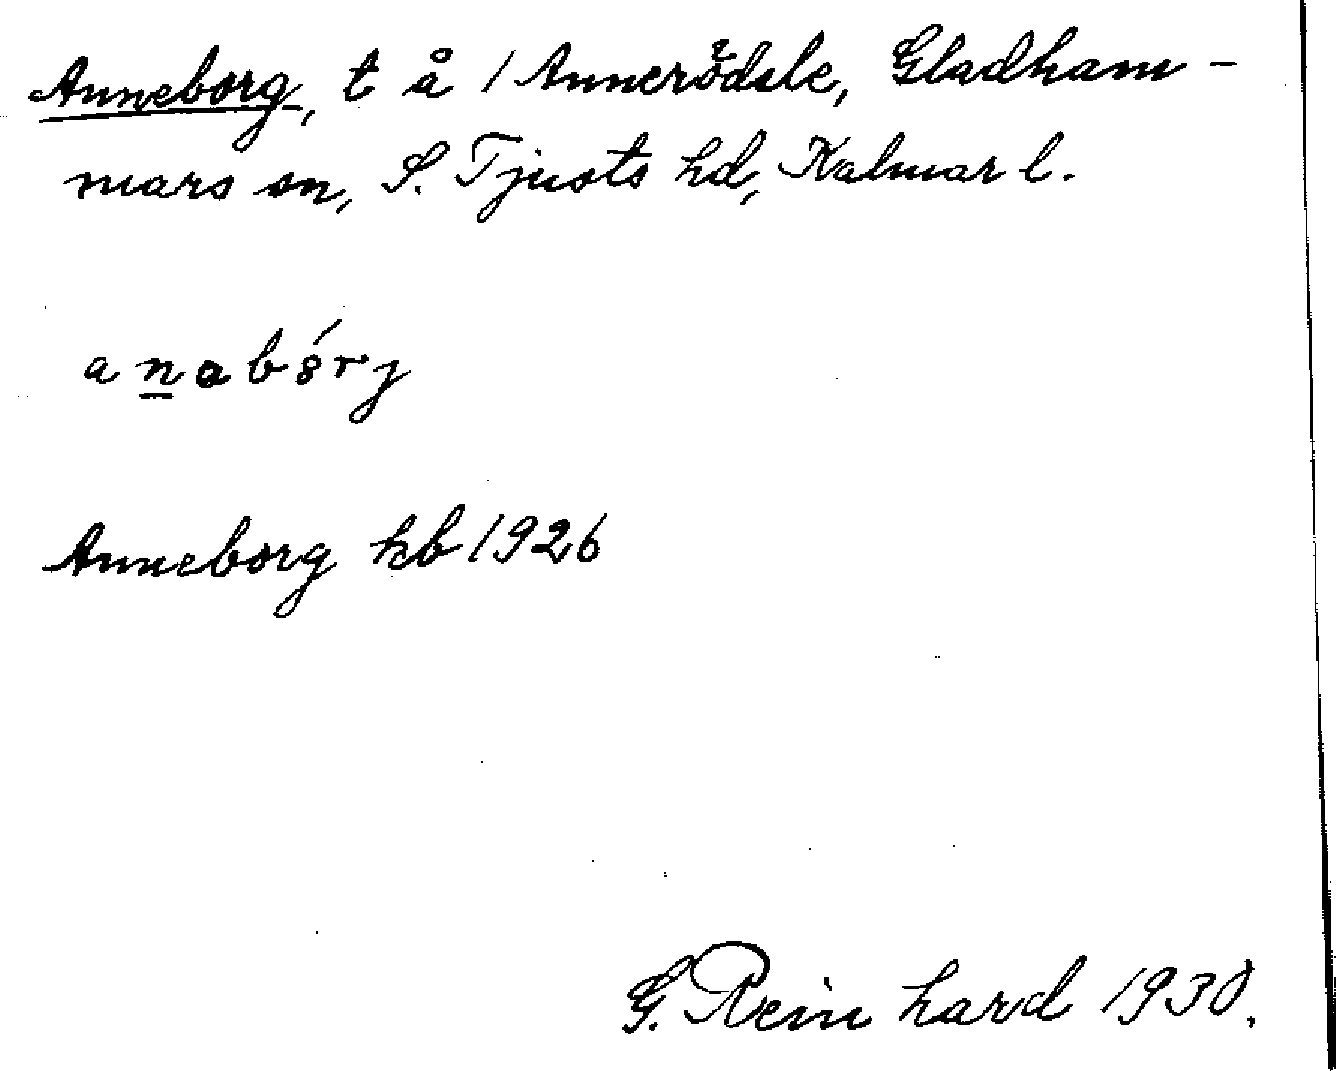 Anneborg, t å 1 Annerödsle, Gladham-
mars sn, S. Tjusts hd, Kalmar l.
Anneborg kb 1926
G. Reinhard 1930.